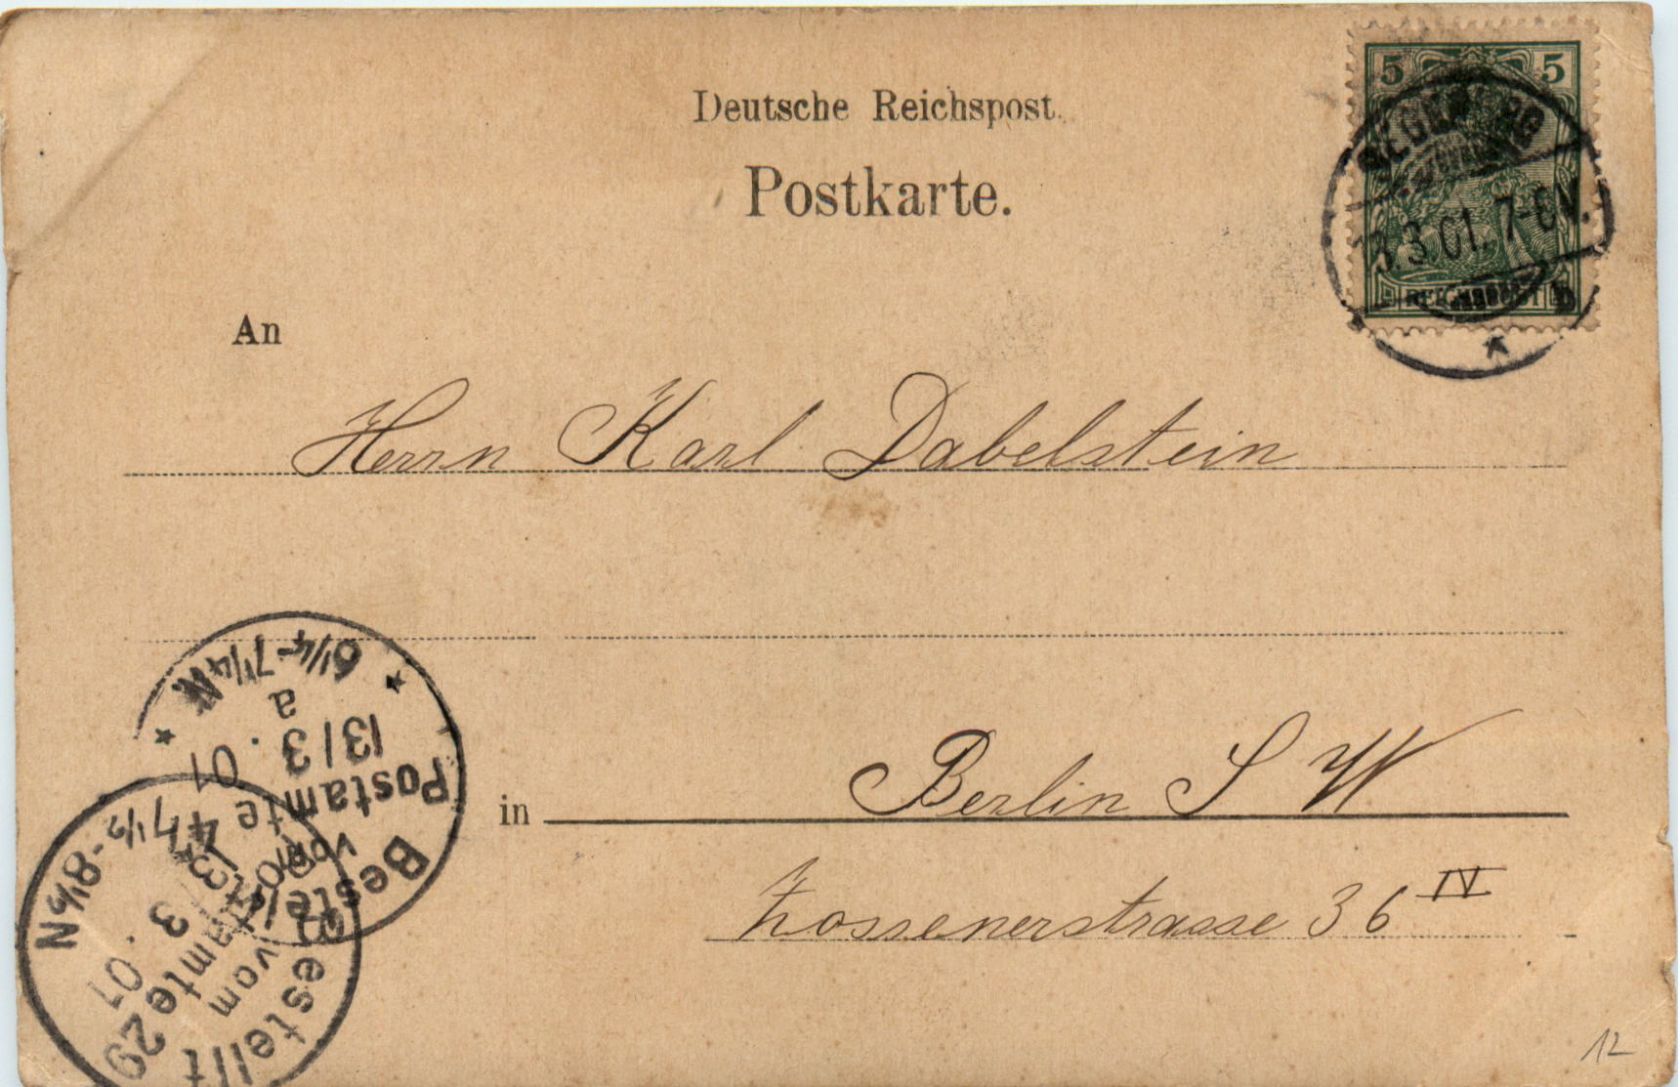 Deutsche Reichspost.
Postkarte.
5 5
3.01. 7-8V.
REICHSPOST
b
An
Herrn Karl Dabelstein
in Berlin S W
Zossenerstrasse 36 IV
Bestellt
vom
Postamte 47
13/3. 01
a
6¼-7¼N.
Bestellt
vom
Postamte 29
13/3. 01
7½-8½N
12